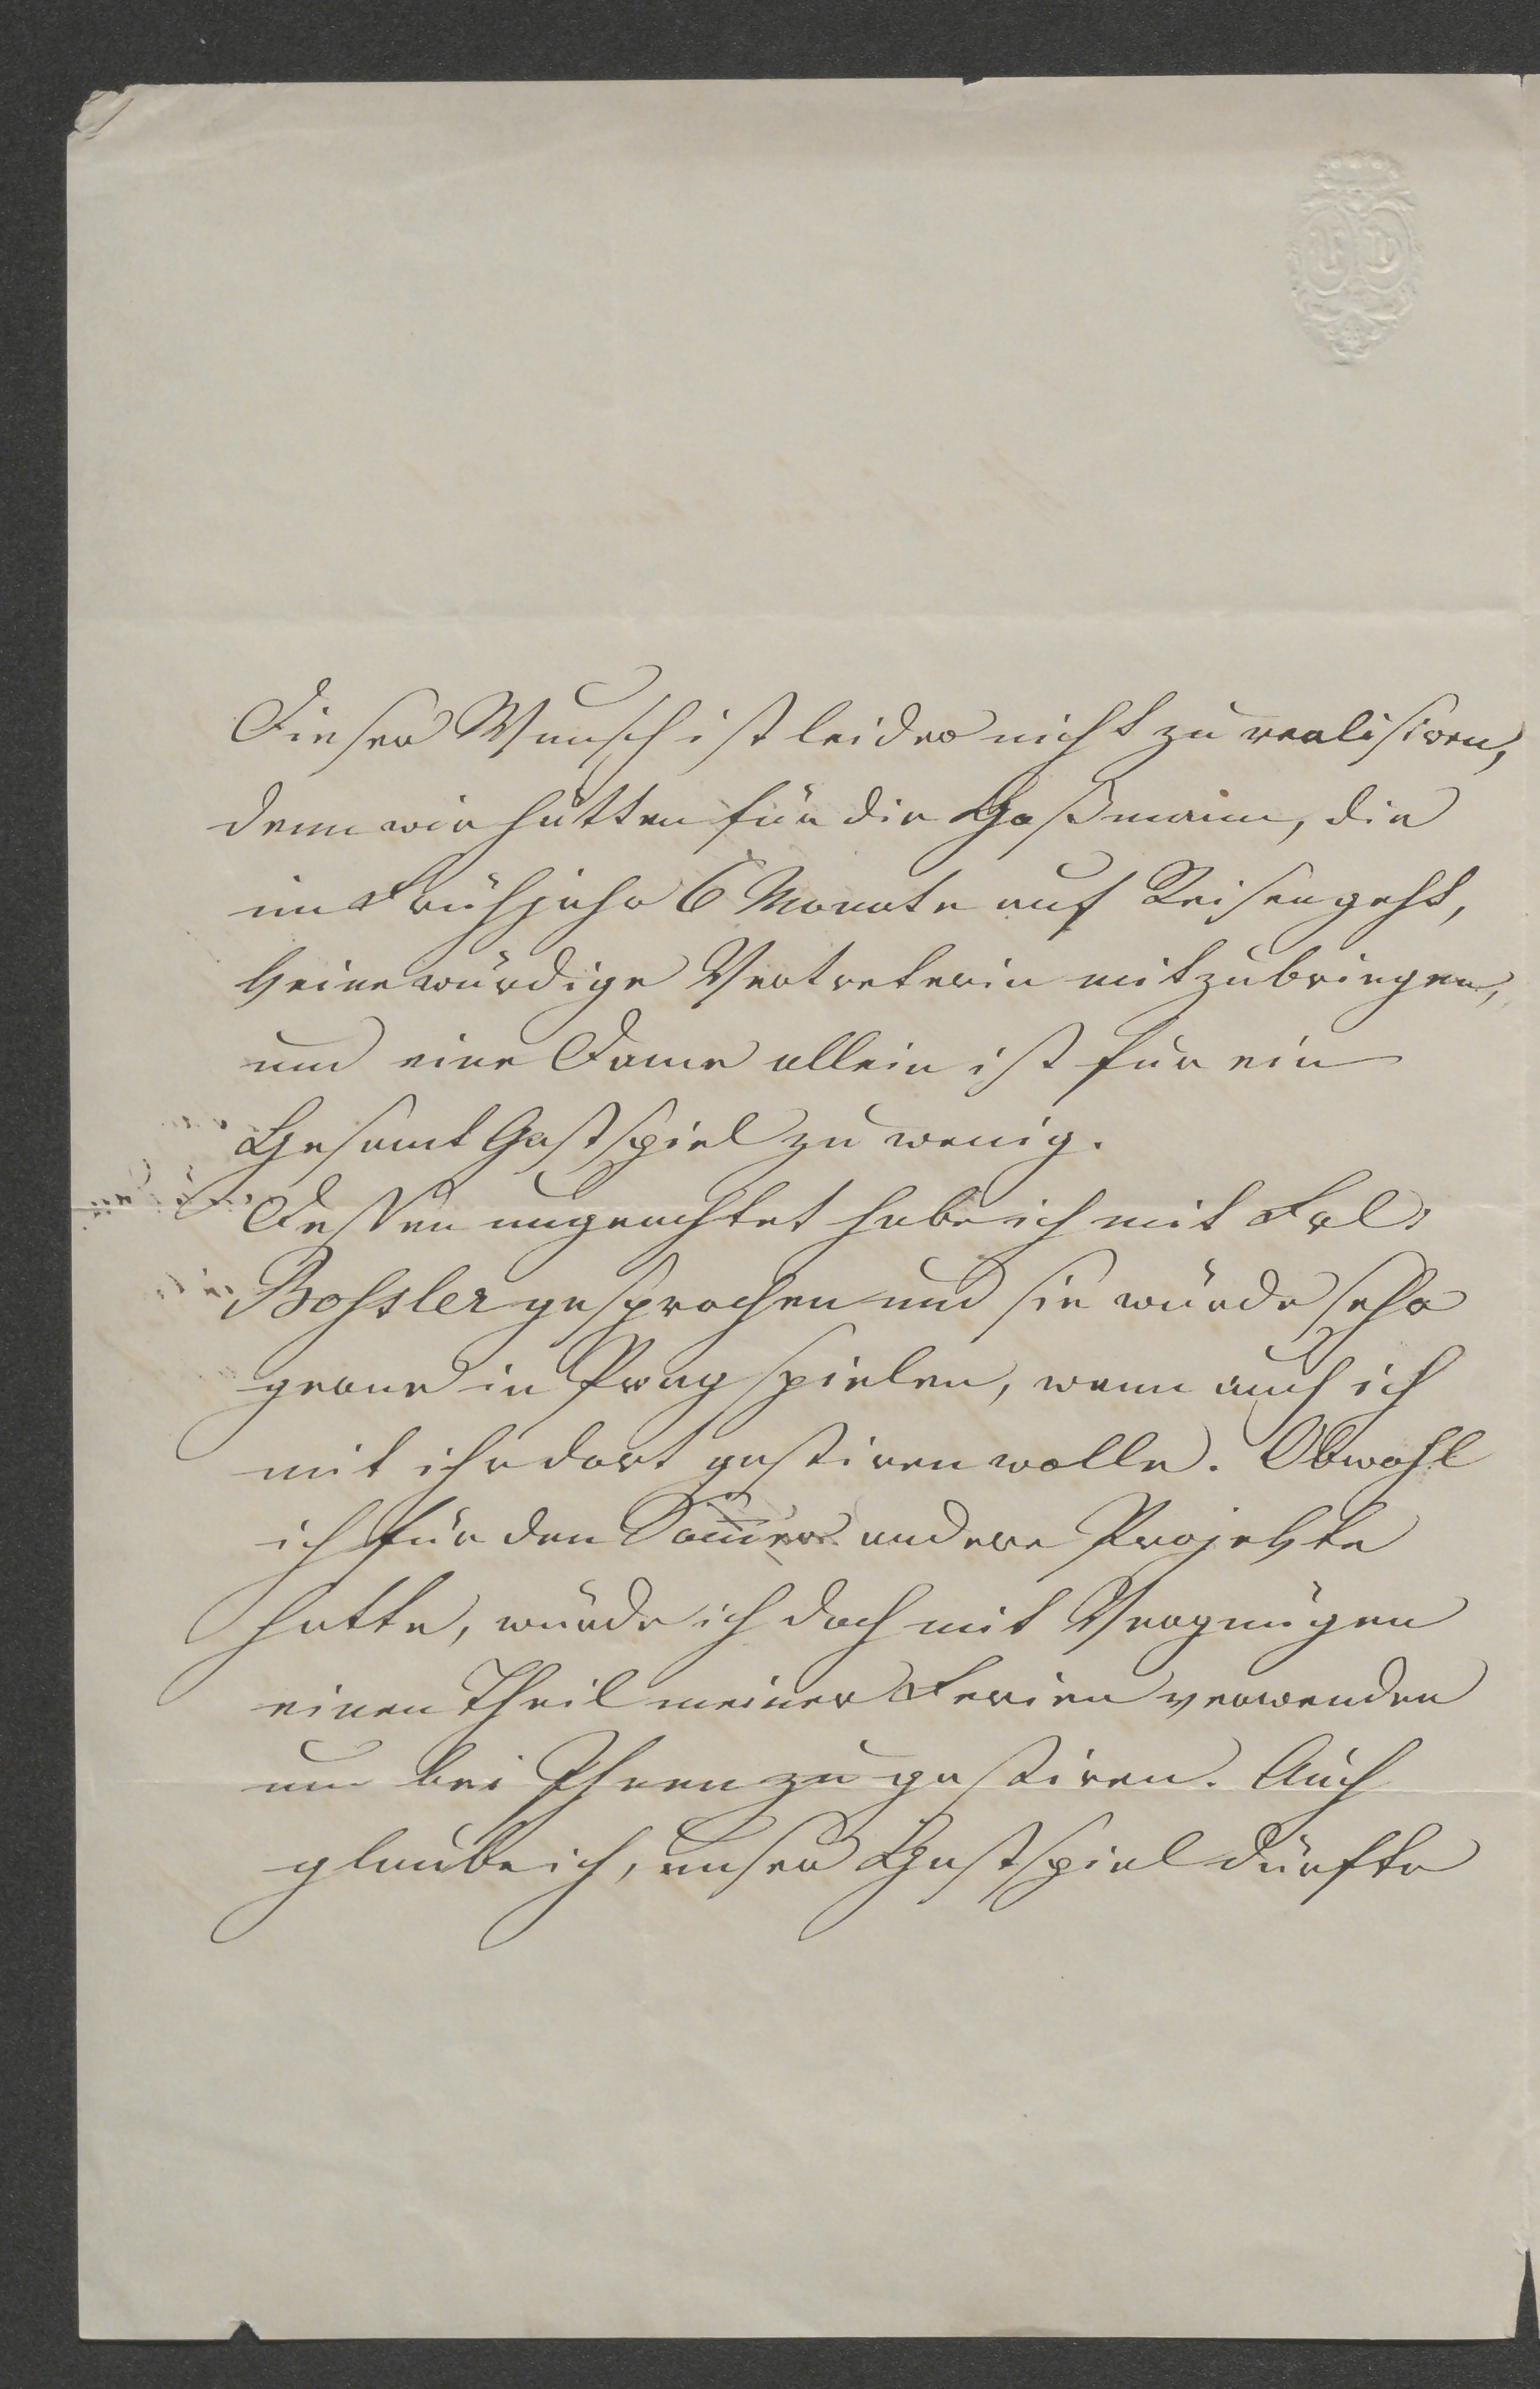 Dieser Wunsch ist leider nicht zu realisiren,
denn wir hätten für die Goßmann, die
im Frühjahr 6 Monate auf Reisen geht,
keine würdige Vertreterin mitzubringen,
und eine Dame allein ist für ein
Gesamt Gastspiel zu wenig.
Dessen ungeachtet habe ich mit Frl.
Bossler gesprochen und sie würde sehr
gerne in Prag spielen, wenn auch ich
mit ihr dort gastiren wolle. Obwohl
ich für den Som̄er andere Projekte
hatte, würde ich doch mit Vergnügen
einen Theil meiner Ferien verwenden
um bei Ihnen zu gastiren. Auch
glaube ich, unser Gastspiel dürfte